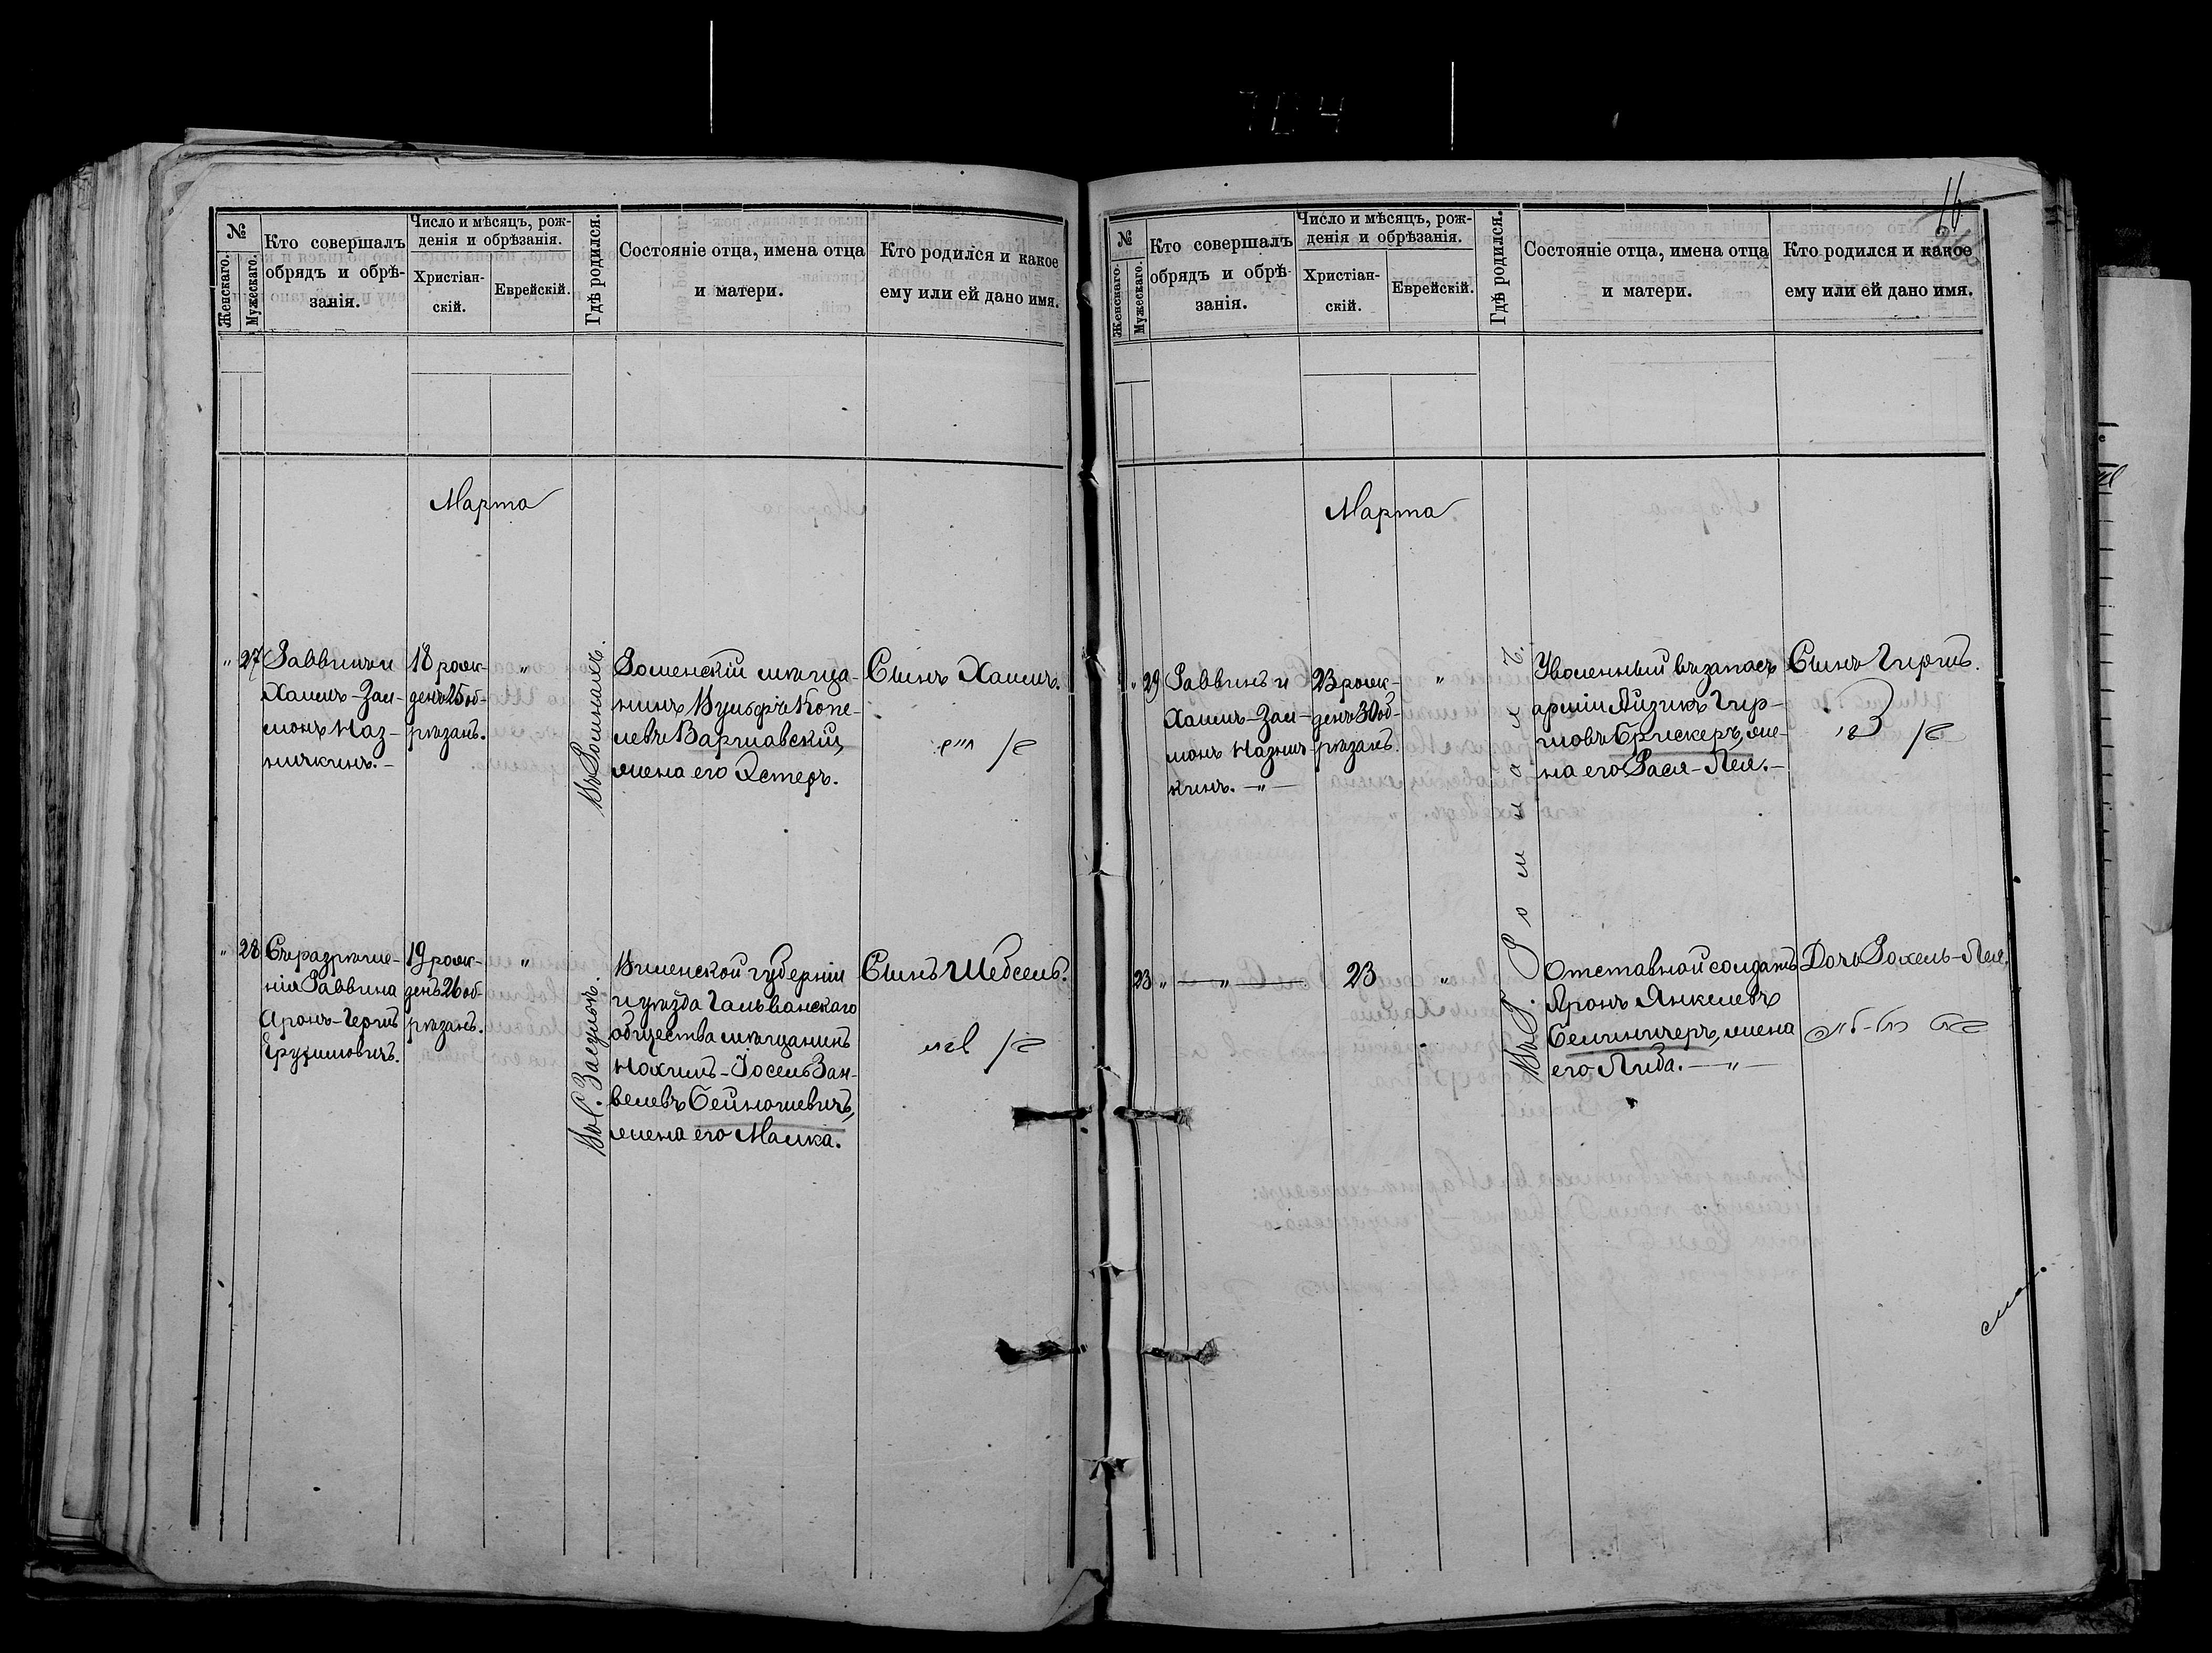 704
№
Женскаго.
Мужескаго.
Кто совершалъ
обрядъ и обрѣ-
занія.
Число и мѣсяцъ, рож-
денія и обрѣзанія.
Христіан-
скій.
Еврейскій.
Гдѣ родился.
Состояніе отца, имена отца
и матери.
Кто родился и какое
ему или ей дано имя.
Марта
" 27
Раввинъ и
Хаимъ-Зал-
монъ Наз-
ничкинъ.-
18 рож-
денъ 25 об-
рѣзанъ.
"
Въ Ромнахъ.
Роменскій мѣща-
нинъ Вульфъ Копе-
левъ Варшавскій,
жена его Эстеръ.
Сынъ Хаимъ.
בן / חיים
" 28
Съ разрѣше-
нія Раввина
Аронъ-Гершъ
19 рож-
денъ 26 об-
рѣзанъ.
"
Виленской губерніи
и уѣзда Гальванскаго
общества мѣщанинъ
Нохимъ-Іосель Зан-
велевъ Бейношевичъ,
жена его Малка.
Сынъ Шебсель.
בן /
16
№
Женскаго.
Мужескаго.
Кто совершалъ
обрядъ и обрѣ-
занія.
Число и мѣсяцъ, рож-
денія и обрѣзанія.
Христіан-
скій.
Еврейскій.
Гдѣ родился.
Состояніе отца, имена отца
и матери.
Кто родился и какое
ему или ей дано имя.
Марта
" 29
Раввинъ и
Хаимъ-Зал-
монъ Назнич-
кинъ. —"—
23 рож-
денъ 30 об-
рѣзанъ.
"
Въ г. Ромнахъ.
Уволенный въ запасъ
арміи Айзикъ Гир-
шовъ Брискеръ, же-
на его Рася-Лея.—
Сынъ Гиршъ.
בן /
23 "
—"—
23
"
Отставной солдатъ
Аронъ Янкелевъ
его Либа. —"—
Дочь Рохель-Лея.
בת רחל-לאה